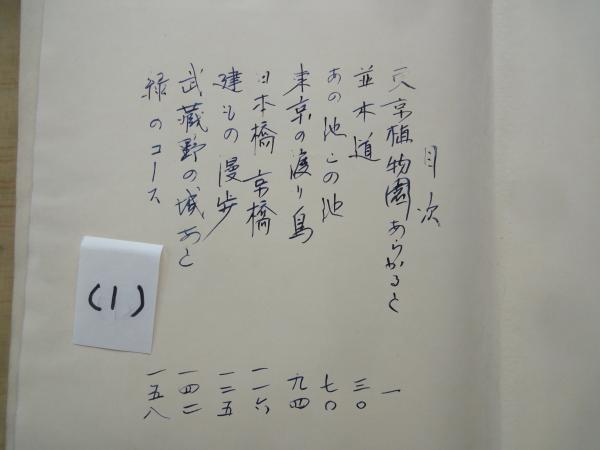 目次
大京植物園あらかると 一
並木道 三〇
あの池この池 七〇
東京の渡り鳥 九四
日本橋 京橋 一一六
建もの漫歩 一二五
武蔵野の城あと 一四二
緑のコース 一五八
(1)